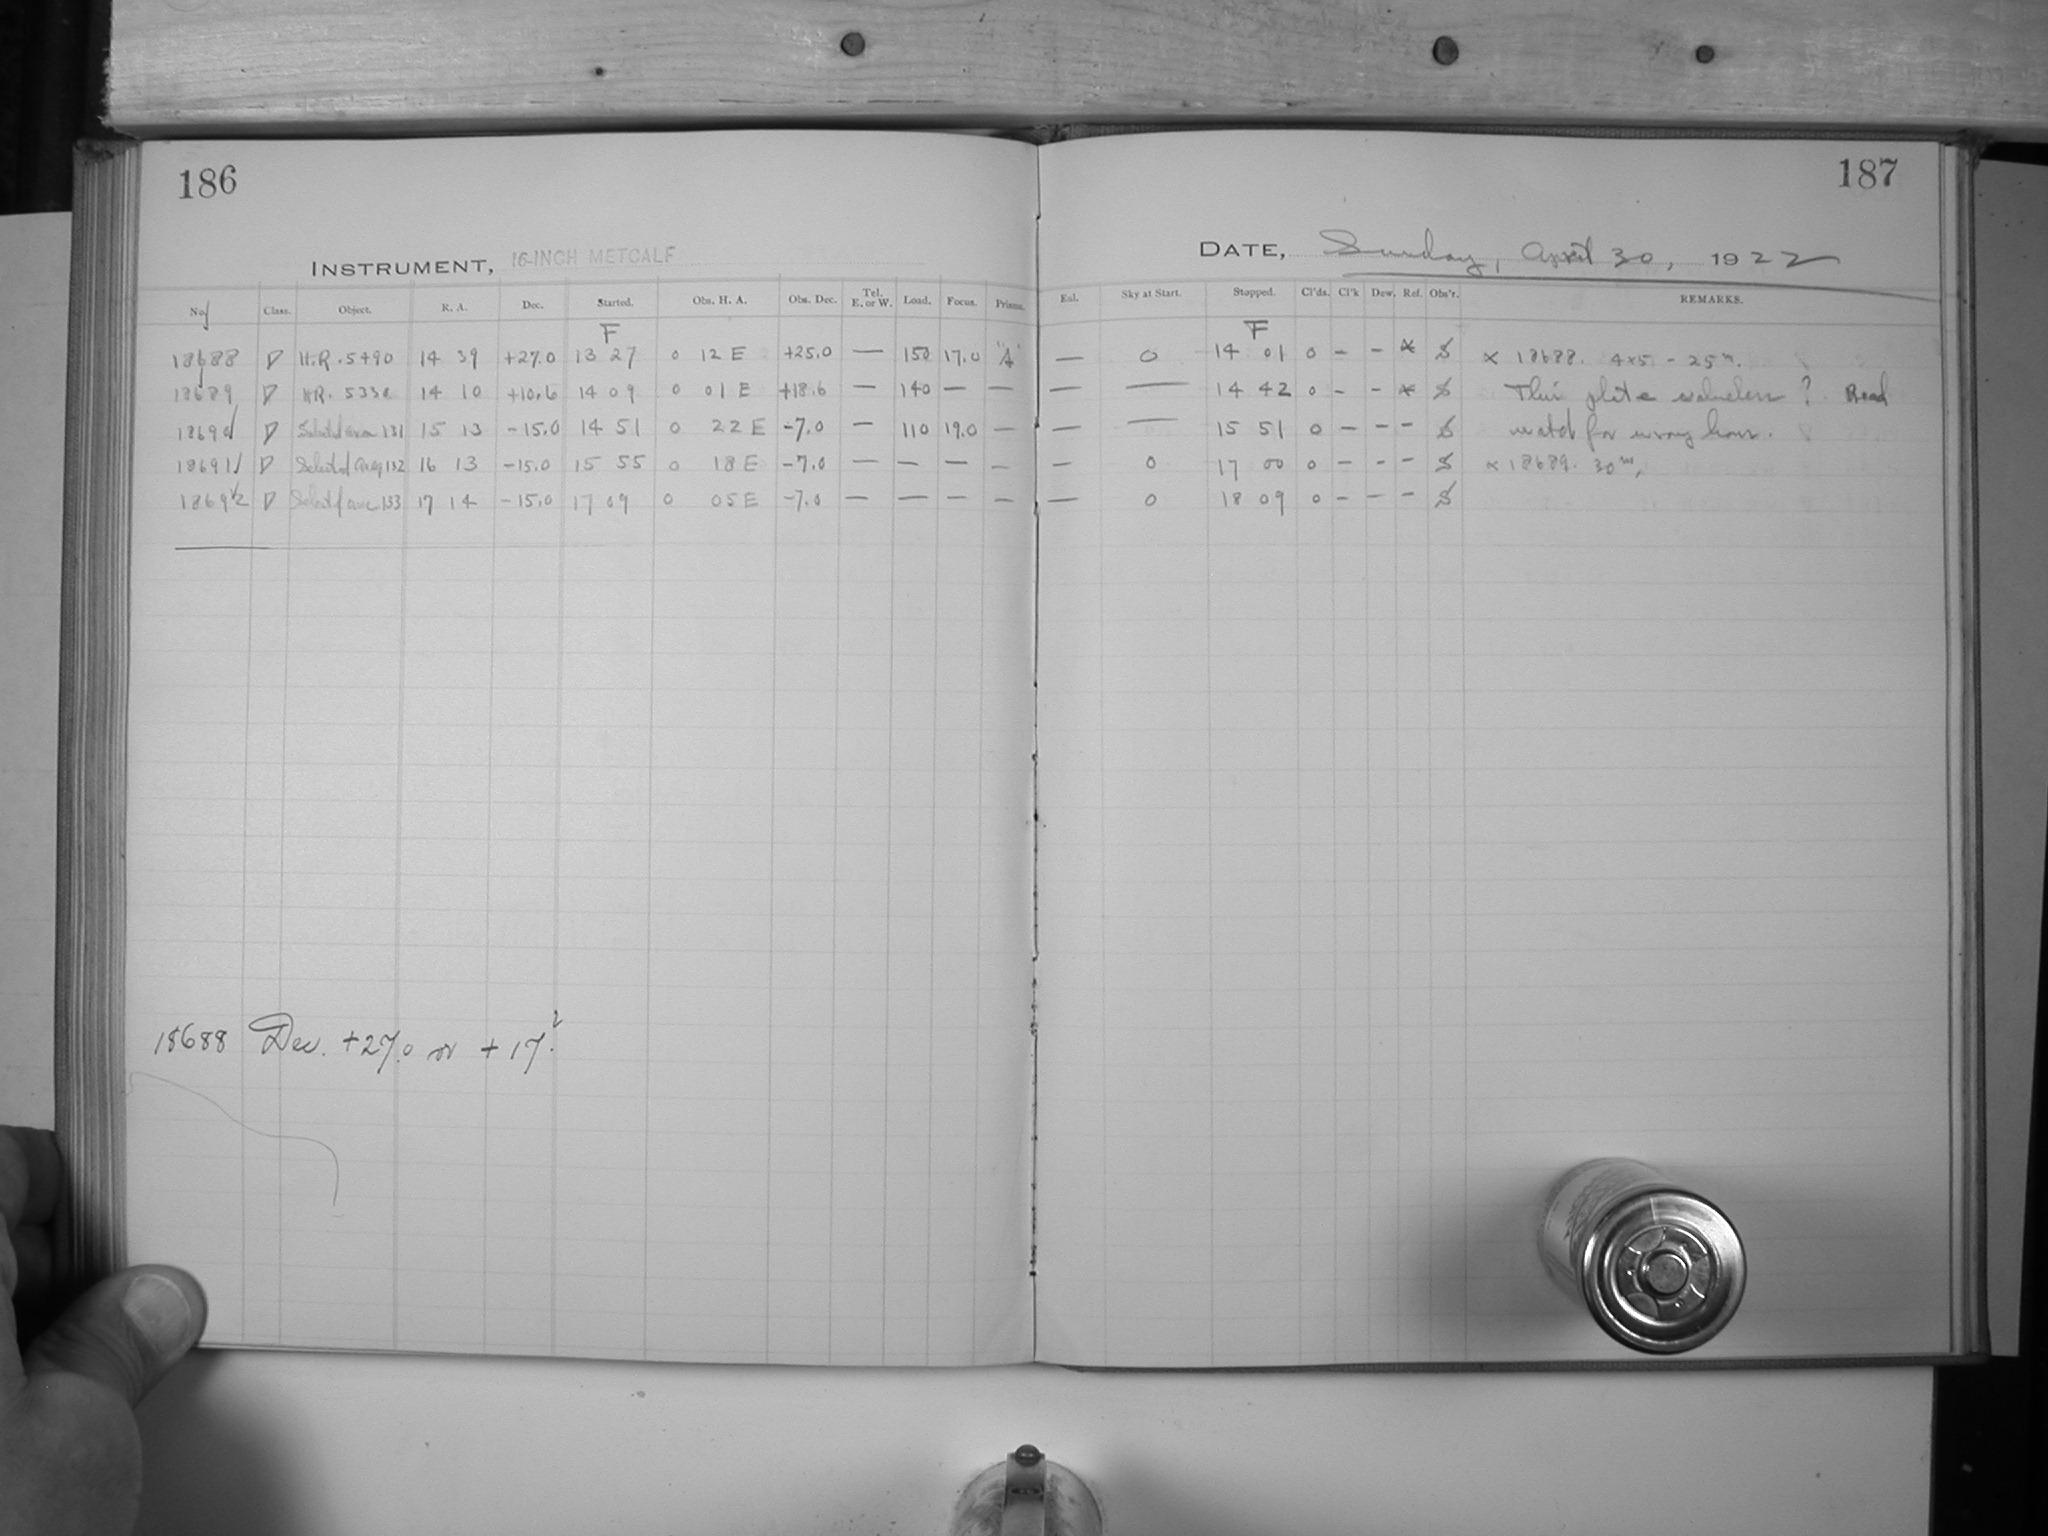 186
187
INSTRUMENT, 16-INCH METCALF
DATE, Sunday, April 30, 1922
No. Class. Object. R. A. Dec. Started. Obs. H. A. Obs. Dec. Tel. E. or W. Load. Focus. Prisms. Eal. Sky at Start. Stopped. Cl'ds. Cl'k Dew. Ref. Obs'r. REMARKS.
F F
18688 D H.R. 5490 14 39 +27.0 13 27 0 12 E +25.0 — 150 17.0 "A" — 0 14 01 0 - - * S x 18688. 4x5 - 25m.
18689 D HR. 5330 14 10 +10.6 14 09 0 01 E +18.6 — 140 — — — — 14 42 0 - - * S This plate valueless? Read
18690 D Selected area 131 15 13 -15.0 14 51 0 22 E -7.0 — 110 19.0 — — — 15 51 0 - - - S watch for wrong hour.
18691 D Selected area 132 16 13 -15.0 15 55 0 18 E -7.0 — — — — — 0 17 00 0 - - - S x 18689. 30m.
18692 D Selected area 133 17 14 -15.0 17 09 0 05 E -7.0 — — — — — 0 18 09 0 - - - S
18688 Dec. +27.0 or +17.2